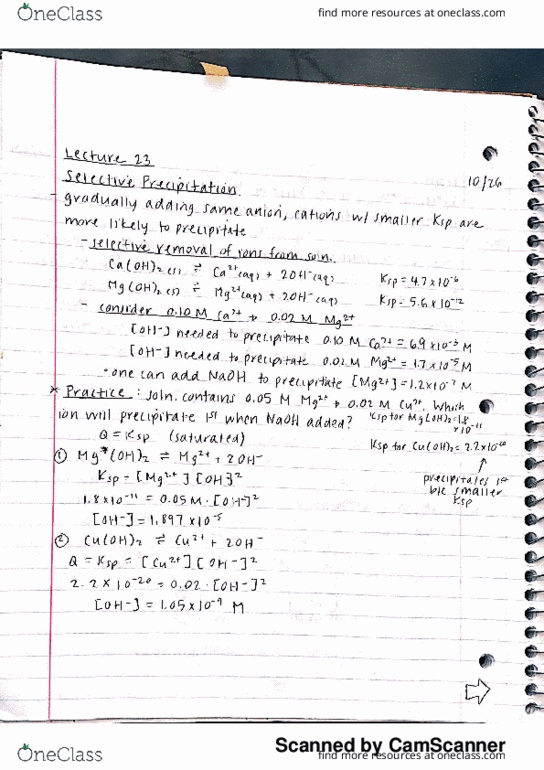 OneClass
find more resources at oneclass.com
Lecture 23
10/26
Selective Precipitation
- gradually adding same anion, cations w/ smaller Ksp are
more likely to precipitate
- selective removal of ions from soln.
Ca(OH)₂ (s) ⇌ Ca²⁺(aq) + 2OH⁻(aq) Ksp = 4.7 x 10⁻⁶
Mg(OH)₂ (s) ⇌ Mg²⁺(aq) + 2OH⁻(aq) Ksp = 5.6 x 10⁻¹²
- consider 0.10 M Ca²⁺ + 0.02 M Mg²⁺
[OH⁻] needed to precipitate 0.10 M Ca²⁺ = 6.9 x 10⁻³ M
[OH⁻] needed to precipitate 0.02 M Mg²⁺ = 1.7 x 10⁻⁵ M
• one can add NaOH to precipitate [Mg²⁺] = 1.2 x 10⁻⁷ M
* Practice: soln. contains 0.05 M Mg²⁺ + 0.02 M Cu²⁺. Which
ion will precipitate 1st when NaOH added?
Ksp for Mg(OH)₂ = 1.8
x 10⁻¹¹
Q = Ksp (saturated)
Ksp for Cu(OH)₂ = 2.2 x 10⁻²⁰
↑
precipitates 1st
b/c smaller
Ksp
① Mg(OH)₂ ⇌ Mg²⁺ + 2OH⁻
Ksp = [Mg²⁺][OH]²
1.8 x 10⁻¹¹ = 0.05 M · [OH⁻]²
[OH⁻] = 1.897 x 10⁻⁵
② Cu(OH)₂ ⇌ Cu²⁺ + 2OH⁻
Q = Ksp = [Cu²⁺][OH⁻]²
2.2 x 10⁻²⁰ = 0.02 · [OH⁻]²
[OH⁻] = 1.05 x 10⁻⁹ M
Scanned by CamScanner
OneClass
find more resources at oneclass.com